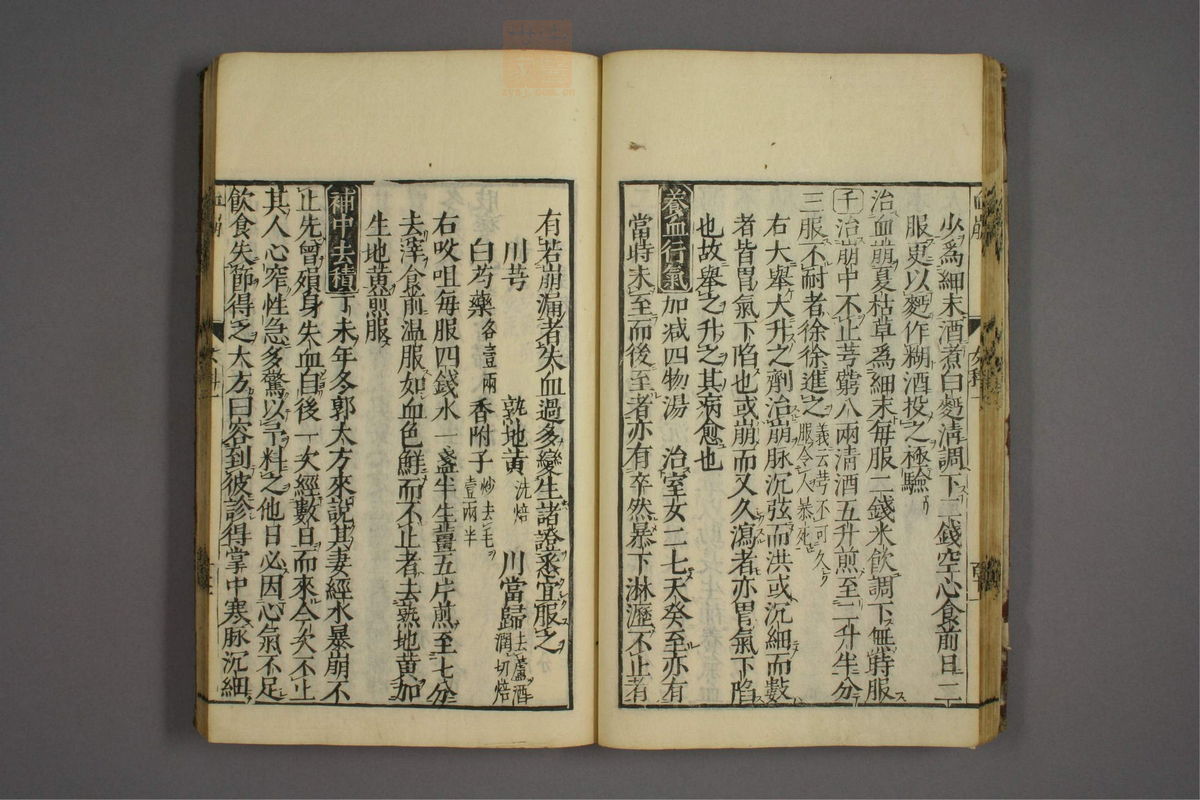 少爲細末酒煮白麪清調下三錢空心食前日二
服更以麪作糊酒投之極驗
治血崩夏枯草爲細末每服二錢米飲調下無時服
千治崩中不止芎藭八兩清酒五升煎至二升半分
三服不耐者徐徐進之義云芎不可久服令人暴死
右大舉大升之劑治崩脉沉弦而洪或沉細而數
者皆胃氣下陷也或崩而又久瀉者亦胃氣下陷
也故舉之升之其病愈也
養血行氣 加减四物湯 治室女二七天癸至亦有
當時未至而後至者亦有卒然暴下淋瀝不止者
有若崩漏者失血過多變生諸證悉宜服之
川芎 熟地黃洗焙 川當歸去蘆酒潤切焙
白芍藥各壹兩 香附子炒去毛壹兩半
右㕮咀每服四錢水一盞半生薑五片煎至七分
去滓食前温服如血色鮮而不止者去熟地黃加
生地黃煎服
補中去積 丁未年冬郭太方來說其妻經水暴崩不
止先曾殞身失血自後一次經數日而來今次不止
其人心窄性急多驚以予料之他日必因心氣不足
飲食失節得之大方曰容到彼診得掌中寒脉沉細